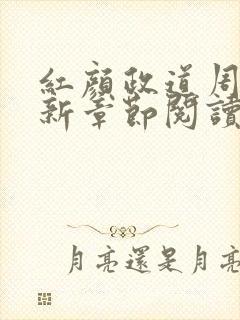 紅顏政道周
新章節閱讀
月亮還是月亮